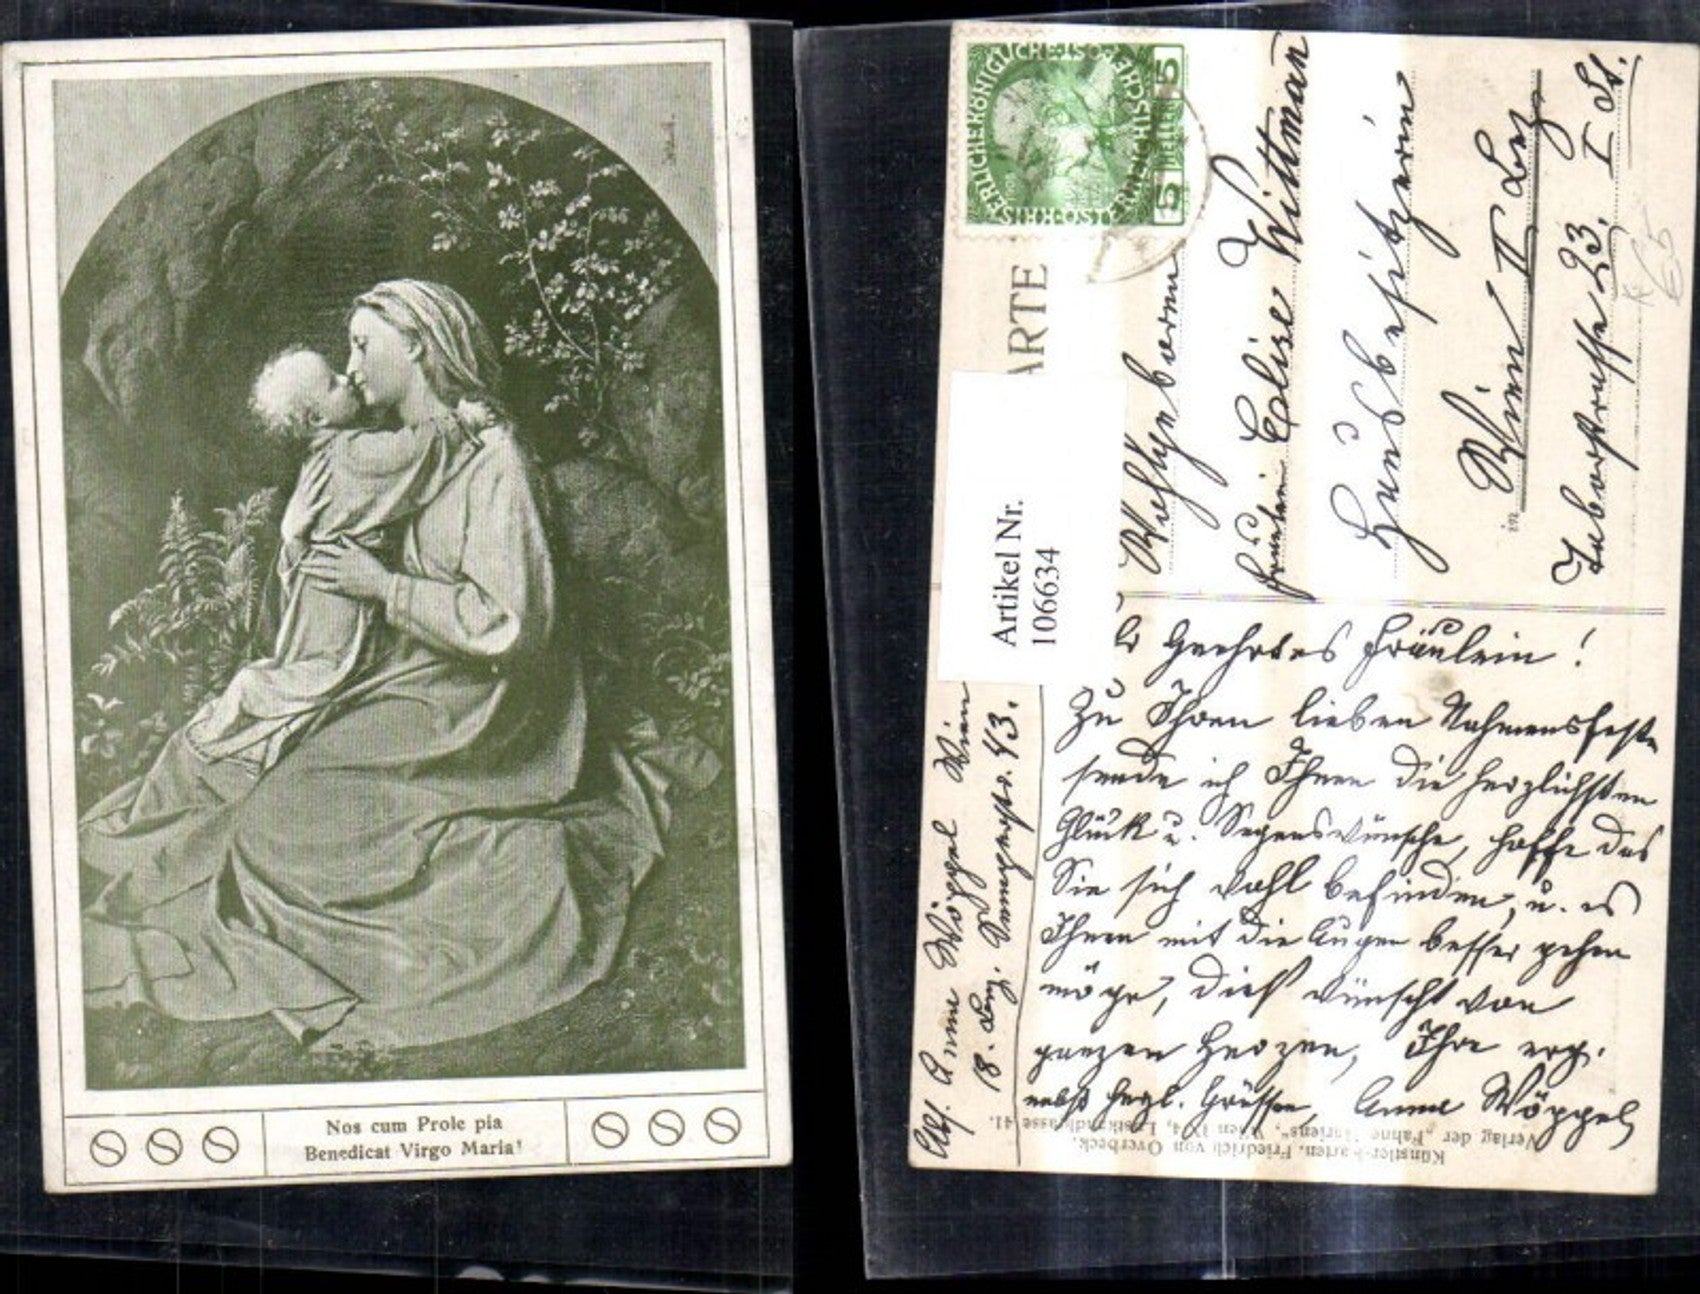 Nos cum Prole pia
Benedicat Virgo Maria!
KAISERLICHE KÖNIGLICHE ÖSTERREICHISCHE POST
5 5
ARTE
Artikel Nr.
106634
Wohlgeboren
Fräulein Elise Wittman
Hausbesitzerin
in Wien II Bez
Taborstrasse 23. I St.
Geehrtes Fräulein!
Zu Ihren lieben Nahmensfeste
sende ich Ihnen die herzlichsten
Glück u. Segenswünsche, hoffe das
Sie sich wohl befinden, u. es
Ihnen mit die Augen besser gehen
möge, dies wünscht von
ganzen Herzen, Ihre erg.
nebst herzl. Grüssen, Anna Wöppel
Abs. Anna Wöppel Wien
18. Bez. 43.
Künstler-Karten. Friedrich von Overbeck.
Verlag der „Fahne Mariens“, Wien IX/4, Lustkandlgasse 41.